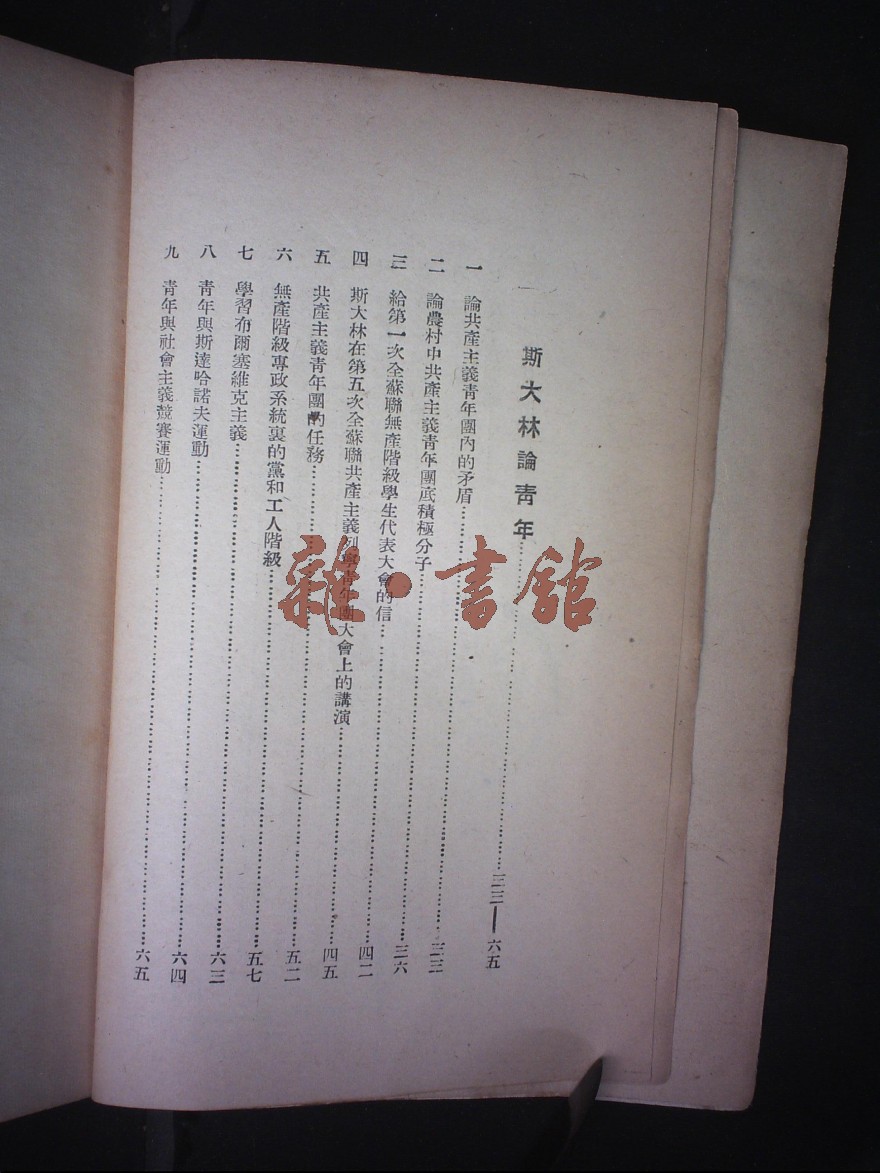 斯大林論青年……三三—六五
一 論共產主義青年團內的矛盾……三三
二 論農村中共產主義青年團底積極分子……三六
三 給第一次全蘇聯無產階級學生代表大會的信……四二
四 斯大林在第五次全蘇聯共產主義列寧青年團大會上的講演……四五
五 共產主義青年團的任務……五二
六 無產階級專政系統裏的黨和工人階級……五七
七 學習布爾塞維克主義……六三
八 青年與斯達哈諾夫運動……六四
九 青年與社會主義競賽運動……六五
雜·書館